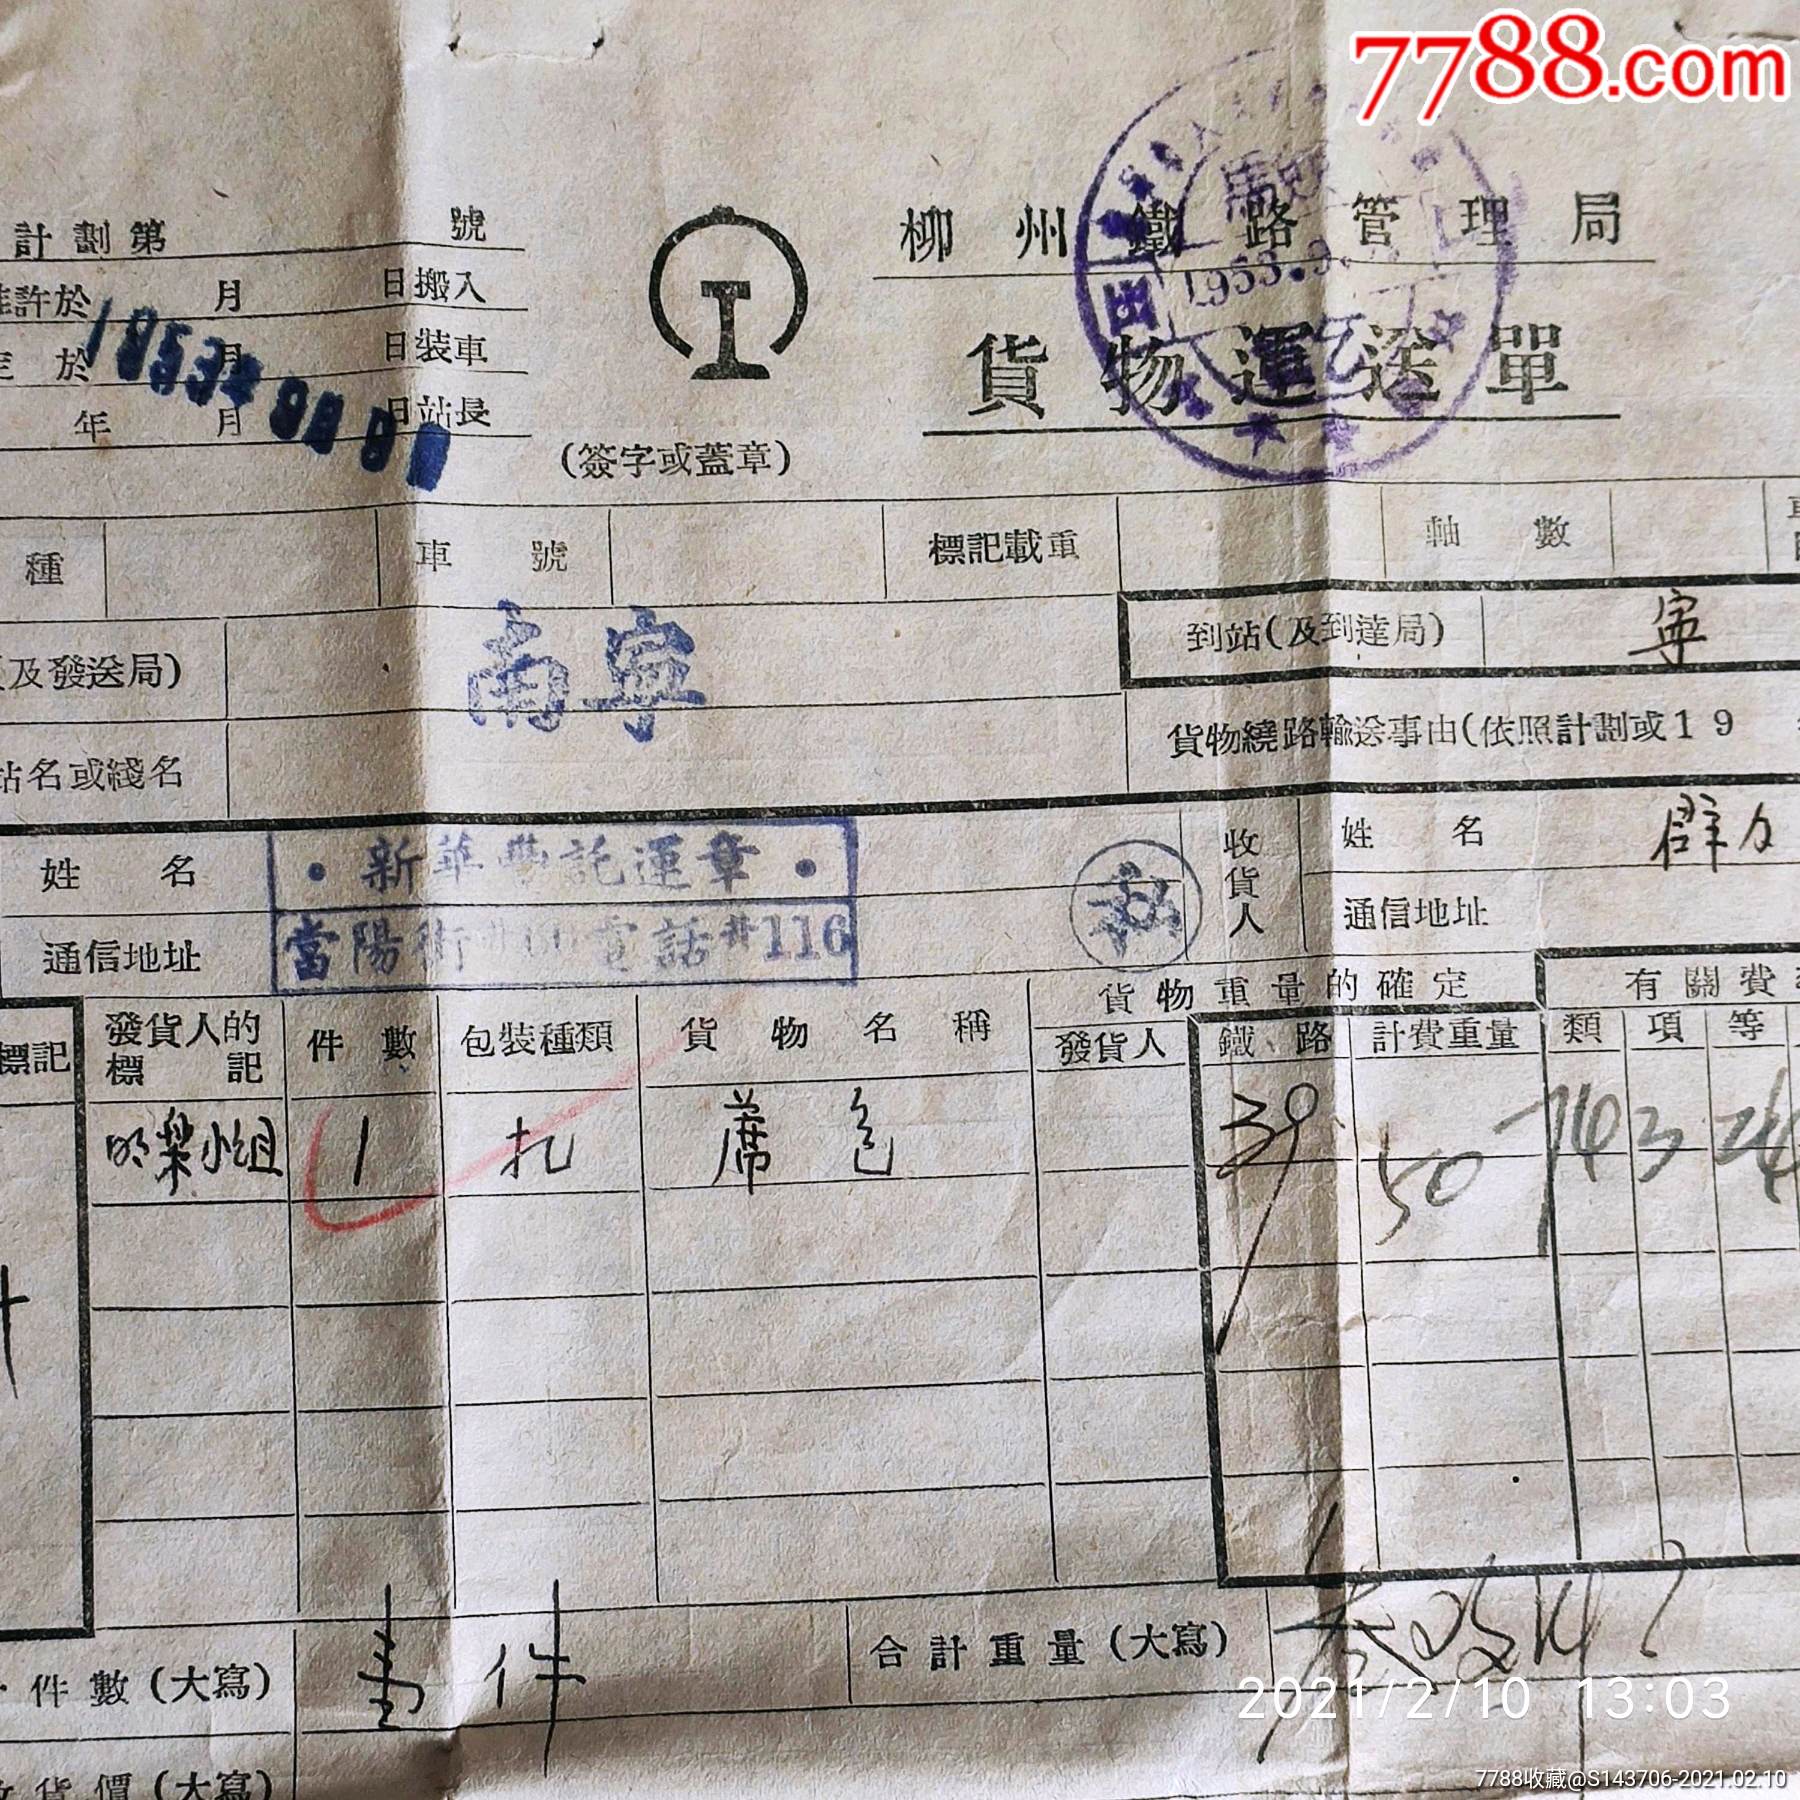 7788.com
計劃第 號
柳州鐵路管理局
准許於 月 日搬入
1953.9.
定於 月 日裝車
貨物運送單
年 月 日站長
(簽字或蓋章)
種 車號 標記載重 軸數
(及發送局) 南寧 到站(及到達局) 寧
站名或綫名 貨物繞路輸送事由(依照計劃或19
姓名 ·新華 託運章· 收貨人 姓名 群力
通信地址 當陽街 電話#116 通信地址
貨物重量的確定 有關費
標記 發貨人的標記 件數 包裝種類 貨物名稱 發貨人 鐵路 計費重量 類 項 等
小組 1 扎 蓆包 39 50 3
件數(大寫) 壹件 合計重量(大寫)
貨價(大寫)
2021/2/10 13:03
7788收藏@S143706-2021.02.10